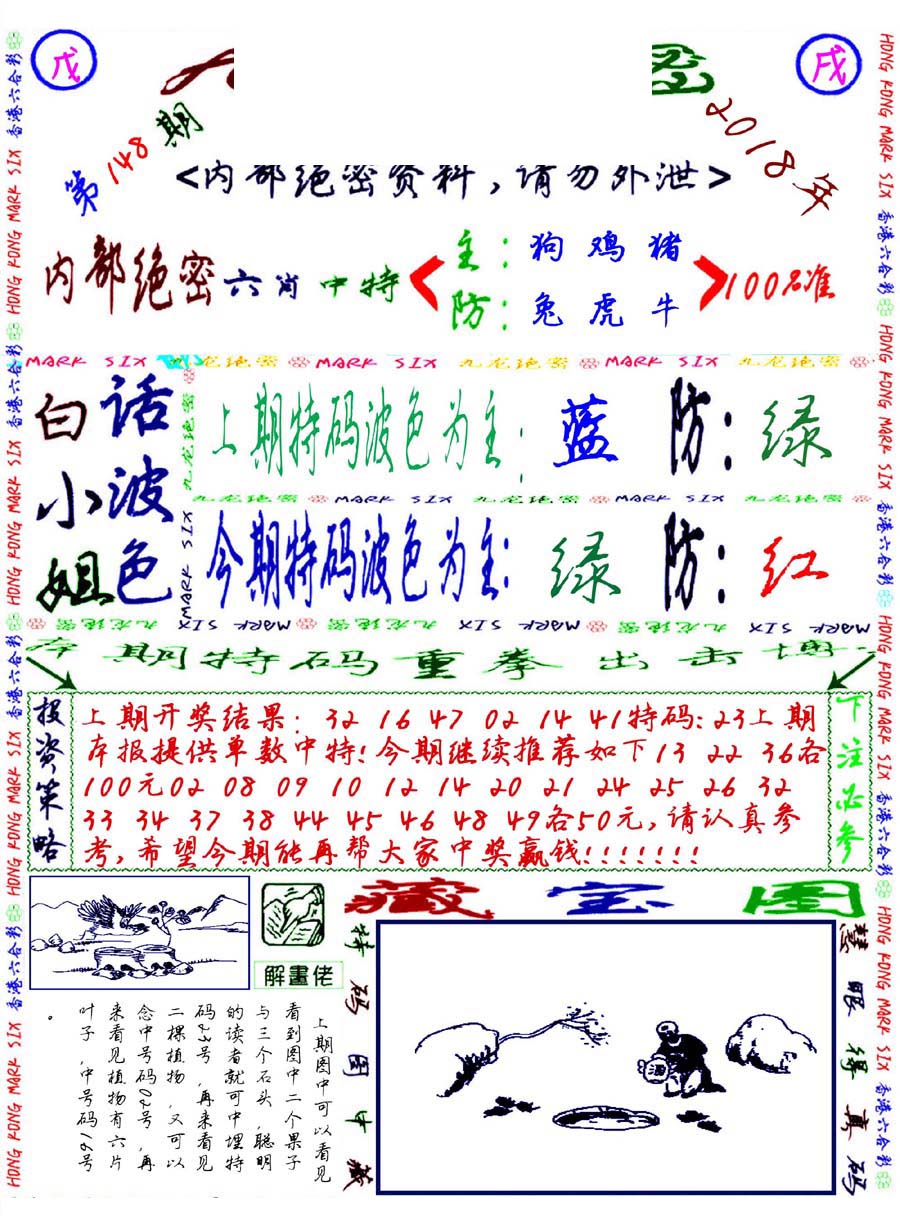 戊
戌
第148期
2018年
<内部绝密资料,请勿外泄>
内部绝密六肖中特
主:狗 鸡 猪
防:兔 虎 牛
100%准
MARK SIX 九龙绝密 MARK SIX 九龙绝密 MARK SIX 九龙绝密
白话小波姐色
上期特码波色为主:蓝 防:绿
九龙绝密 MARK SIX 九龙绝密 MARK SIX 九龙绝密
今期特码波色为主:绿 防:红
九龙绝密 MARK SIX 九龙绝密 MARK SIX 九龙绝密 MARK SIX
期特码重拳出击
投资策略
上期开奖结果: 32 16 47 02 14 41特码:23上期
本报提供单数中特!今期继续推荐如下13 22 36各
100元02 08 09 10 12 14 20 21 24 25 26 32
33 34 37 38 44 45 46 48 49各50元,请认真参
考,希望今期能再帮大家中奖赢钱!!!!!!!
下注必参
藏宝图
解畫佬
上期图中可以看见
看到图中二个果子
与三个石头,聪明
的读者就可中埋特
码23号,再来看见
二棵植物,又可以
念中号码02号,再
来看见植物有六片
叶子,中号码16号
。
特码图中藏
慧眼得真码
HONG KONG MARK SIX 香港六合彩 HONG KONG MARK SIX 香港六合彩 HONG KONG MARK SIX 香港六合彩 HONG KONG MARK SIX 香港六合彩
HONG KONG MARK SIX 香港六合彩 HONG KONG MARK SIX 香港六合彩 HONG KONG MARK SIX 香港六合彩 HONG KONG MARK SIX 香港六合彩